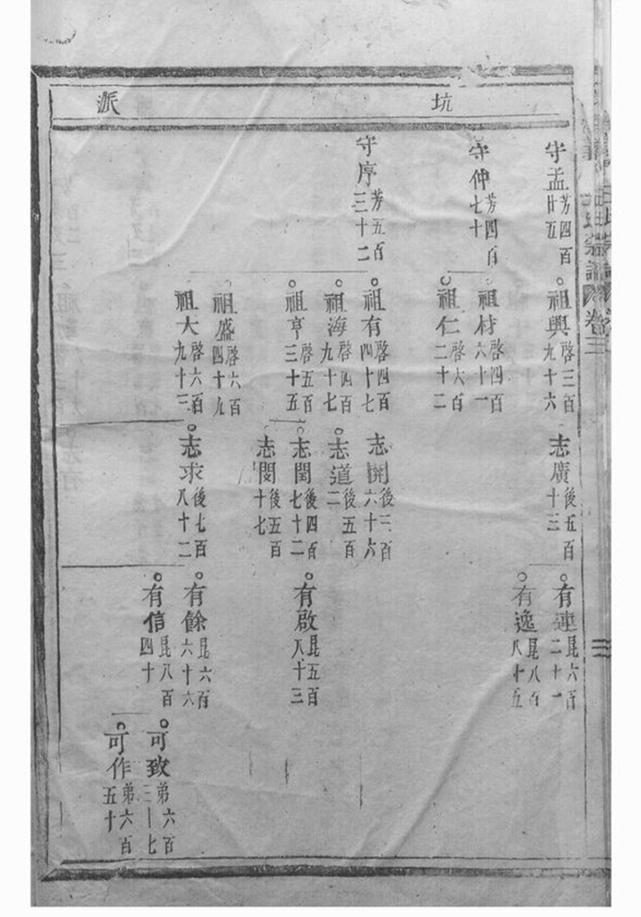 坑派
守孟芳四百廿五
守仲芳四百七十
守序芳五百三十二
祖興啓三百九十六
祖材啓四百六十一
祖仁啓六百二十二
祖有啓四百四十七
祖海啓四百九十七
祖亨啓五百三十五
祖盛啓六百四十九
祖大啓六百九十三
志廣後五百十三
志開後三百六十六
志道後五百二
志閏後四百七十二
志閔後五百十七
志求後七百八十二
有連昆六百二十一
有逸昆八百八十五
有啟昆五百八十三
有餘昆六百六十六
有信昆八百四十
可致弟六百三十七
可作弟六百五十
宗譜
卷三